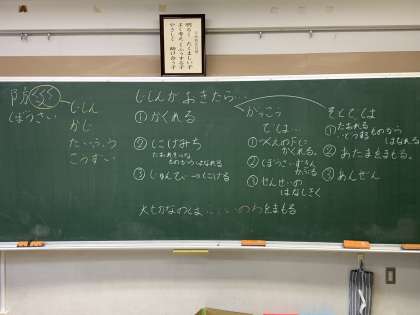 明るく たくましい子
よく考え くふうする子
やさしく 助け合う子
防
ぼうさい
じしん
かじ
たいふう
こうずい
じしんがおきたら…
①かくれる
②にげみち
たおれそうな
ものからはなれる
③
にげる
がっこう
では…
①つくえの下に
かくれる。
②ぼうさいずきん
かぶる
③せんせいの
はなしきく
そとでは
①たおれる
ものから
はなれる
②あたまをまもる。
③あんぜん
大せつなのは…いのちをまもる